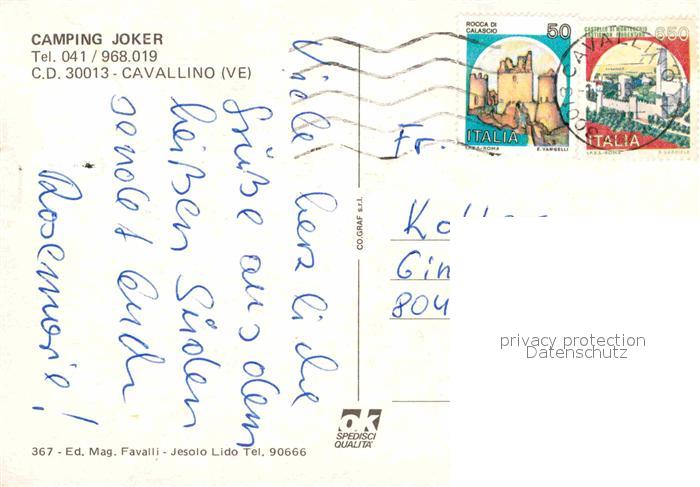 CAMPING JOKER
Tel. 041 / 968.019
C.D. 30013 - CAVALLINO (VE)
Viele herzliche
Grüße aus dem
heißen Süden
sendet Euch
Rosemarie!
367 - Ed. Mag. Favalli - Jesolo Lido Tel. 90666
CO.GRAF s.r.l.
ok
SPEDISCI
QUALITA'
ROCCA DI
CALASCIO
50
ITALIA
I.P.Z.S.-ROMA E. VANGELLI
CASTELLO DI MONTECCHIO
CASTIGLION FIORENTINO
650
ITALIA
I.P.Z.S.-ROMA
CAVALLINO
Fr.
Gin
804
privacy protection
Datenschutz